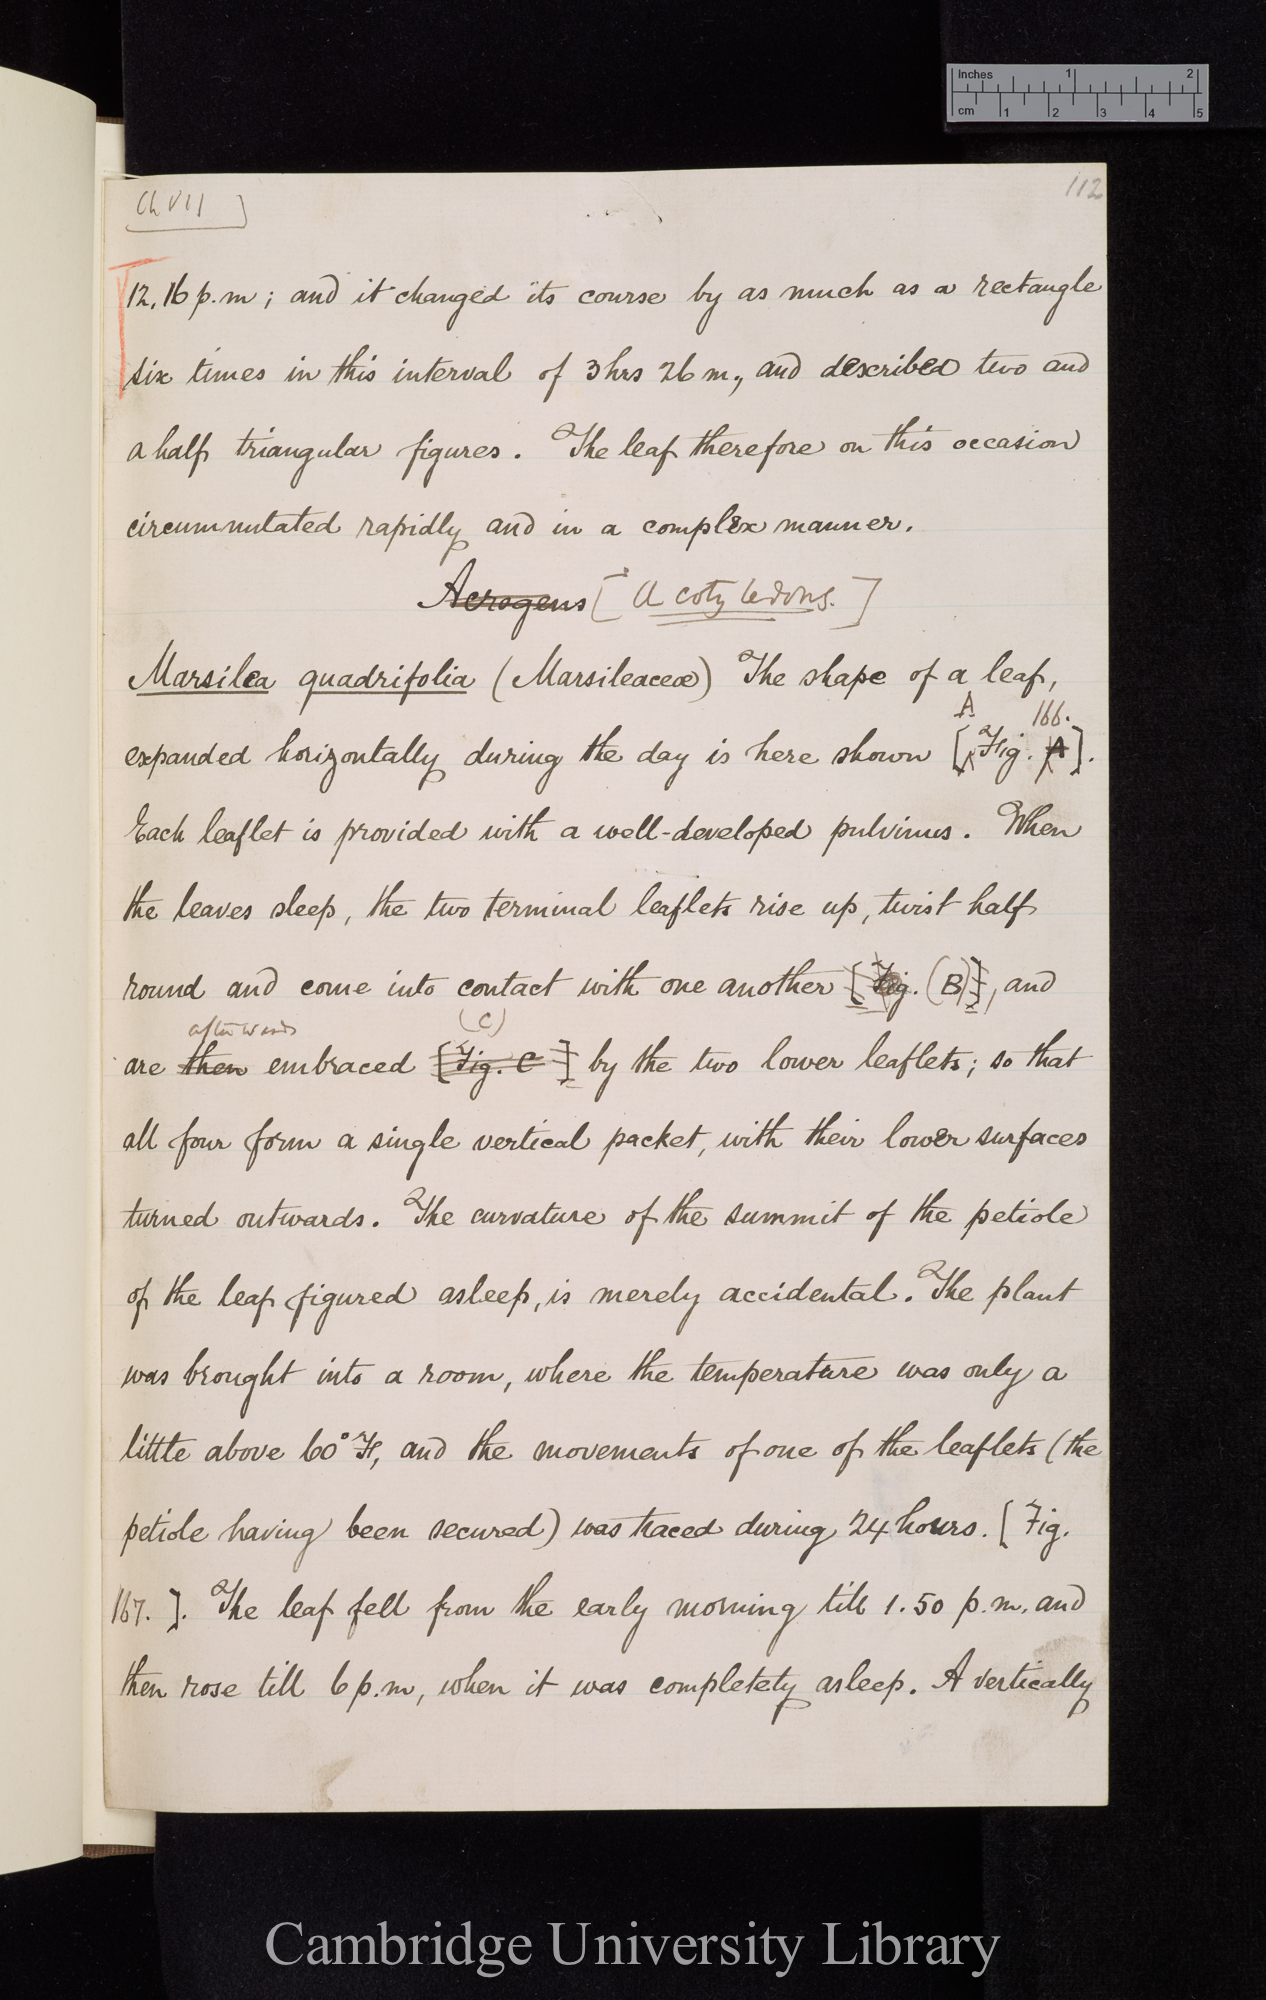 Inches 1 2
cm 1 2 3 4 5
Ch VII ]
112
12.16 p.m; and it changed its course by as much as a rectangle
six times in this interval of 3 hrs 26 m, and described two and
a half triangular figures. The leaf therefore on this occasion
circumnutated rapidly and in a complex manner.
Acrogens [Acotyledons.]
Marsilea quadrifolia (Marsileaceæ) The shape of a leaf,
A 166.
expanded horizontally during the day is here shown [Fig. A].
Each leaflet is provided with a well-developed pulvinus. When
the leaves sleep, the two terminal leaflets rise up, twist half
round and come into contact with one another [Fig. (B)], and
afterwards (C)
are then embraced [Fig. C] by the two lower leaflets; so that
all four form a single vertical packet, with their lower surfaces
turned outwards. The curvature of the summit of the petiole
of the leaf figured asleep, is merely accidental. The plant
was brought into a room, where the temperature was only a
little above 60° F, and the movements of one of the leaflets (the
petiole having been secured) was traced during 24 hours. [Fig.
167.]. The leaf fell from the early morning till 1.50 p.m. and
then rose till 6 p.m, when it was completety asleep. A vertically
Cambridge University Library